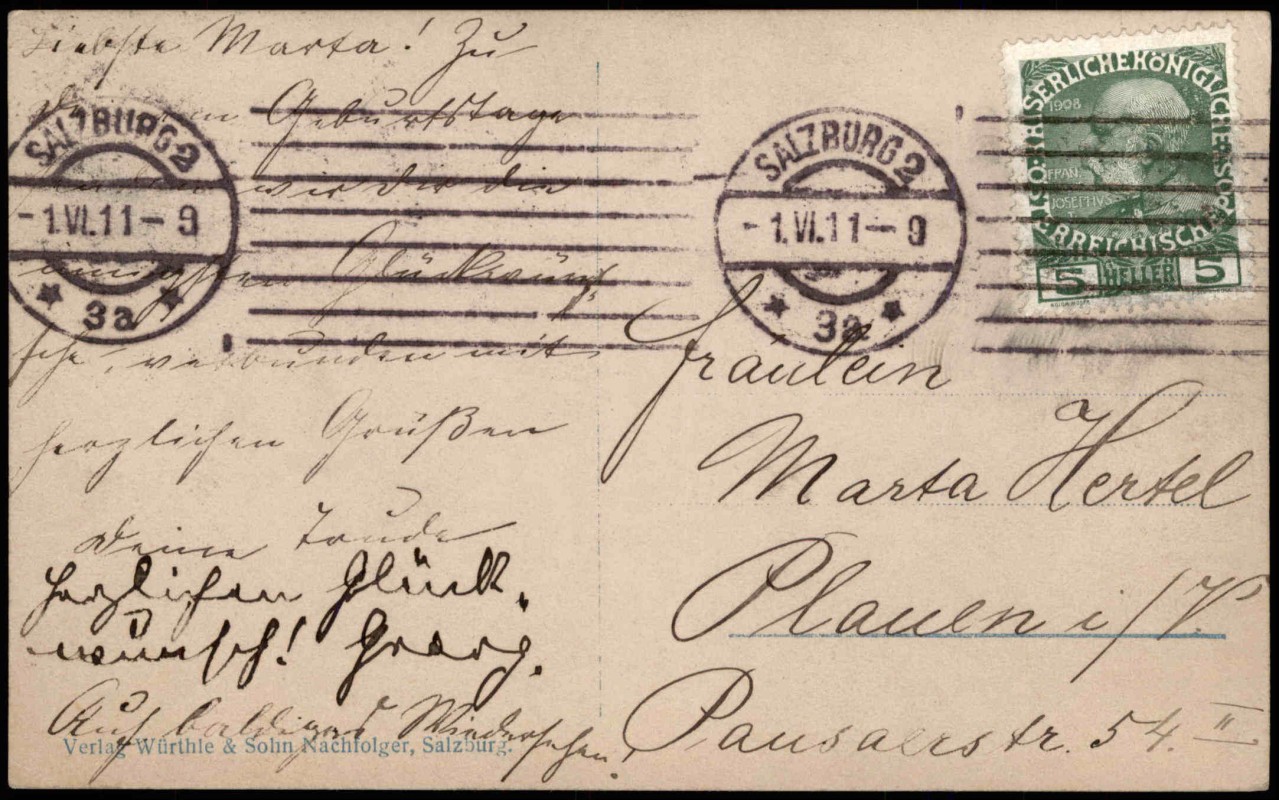 Liebste Marta! Zu
Deinem Geburtstage
senden wir dir die
innigsten Glückwün-
sche, verbunden mit
herzlichen Grüßen
Deine Trude
Herzlichen Glück-
wunsch! Georg.
Auf baldiges Wiedersehen!
Verlag Würthle & Sohn Nachfolger, Salzburg.
SALZBURG 2
-1.VI.11-9
3a
SALZBURG 2
-1.VI.11-9
3a
KAISERLICHEKÖNIGLICHE
ÖSTERREICHISCHE
1908
FRAN.
JOSEPHVS
5 HELLER 5
Fräulein
Marta Hertel
Plauen i/V.
Pausaerstr. 54. II